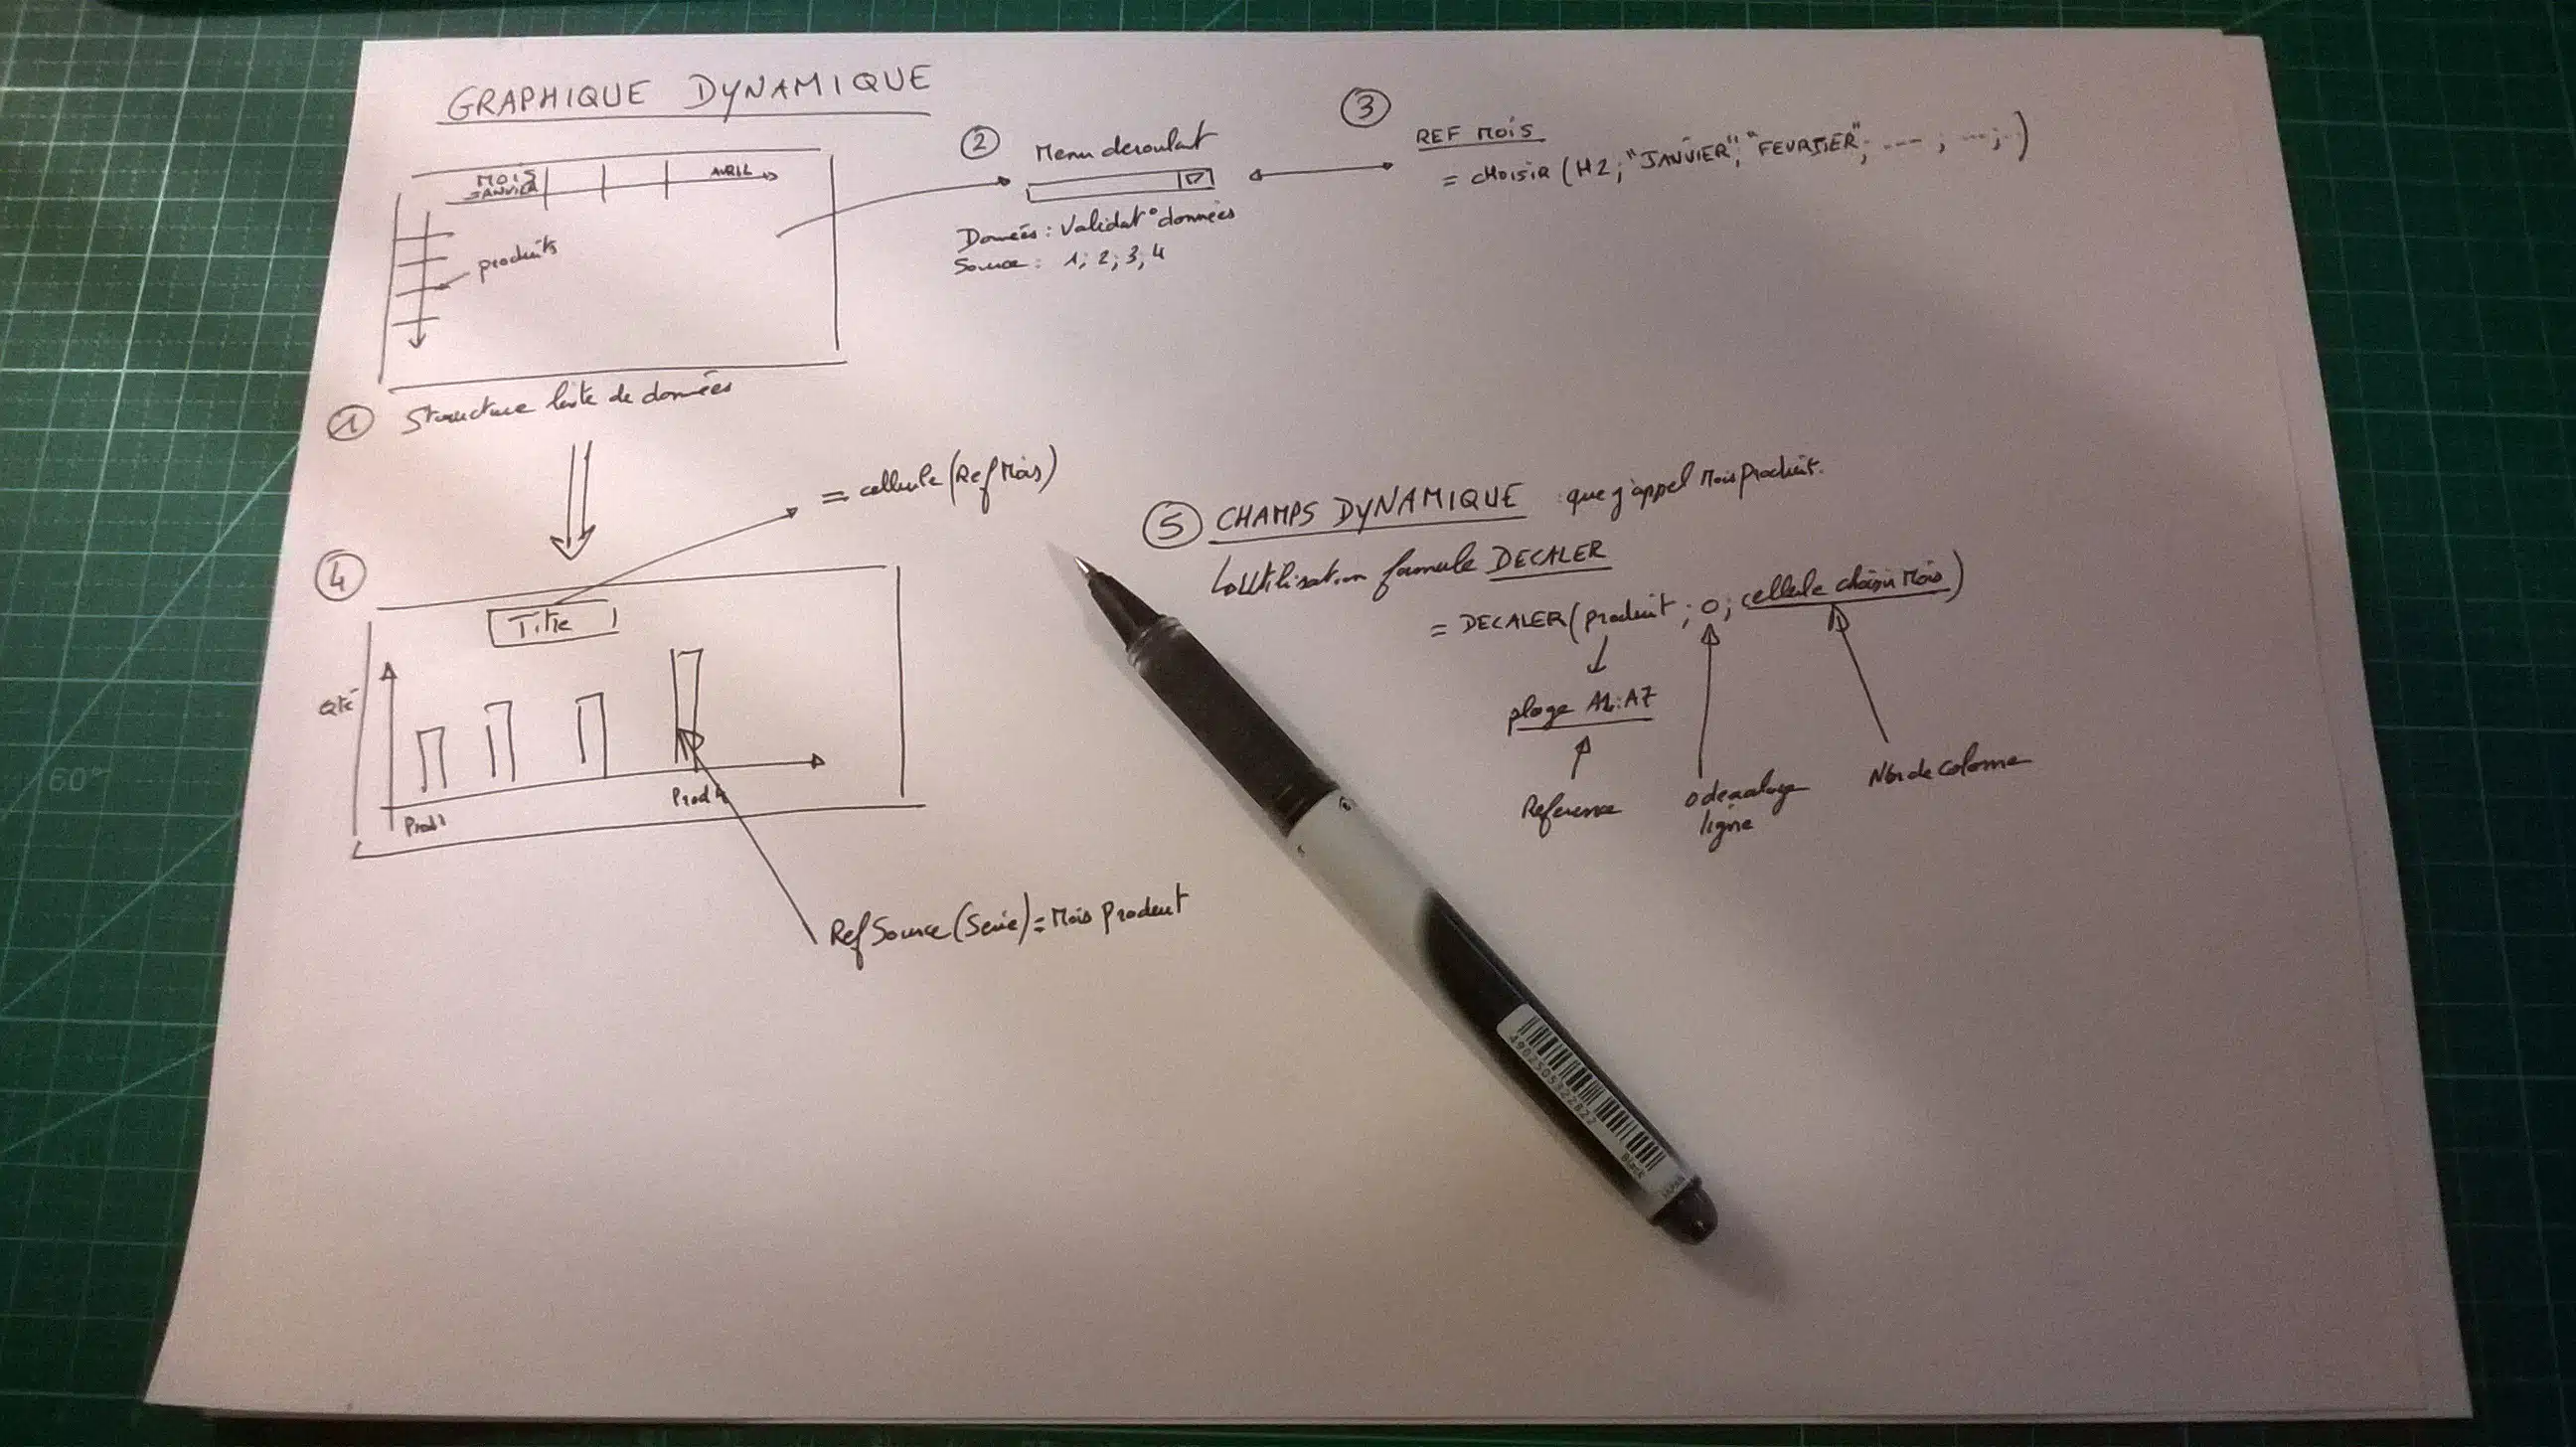 GRAPHIQUE DYNAMIQUE
MOIS
JANVIER
AVRIL
produits
① Structure liste de données
②
Menu deroulant
Données : Validat° données
Source : 1; 2; 3; 4
③
REF MOIS
= CHOISIR (H2; "JANVIER"; "FEVRIER"; --- ; --- ; )
④
= cellule (Ref Mois)
Titre
Qté
Prod 1
Prod 4
Ref Source (Serie) = Mois Produit
⑤ CHAMPS DYNAMIQUE que j'appel Mois Produit.
Utilisation formule DECALER
= DECALER (produit ; 0 ; cellule choisir Mois)
plage A1:A7
Reference
0 decalage
ligne
Nbr de colonne
60°
4902505322822
Black
JAPAN